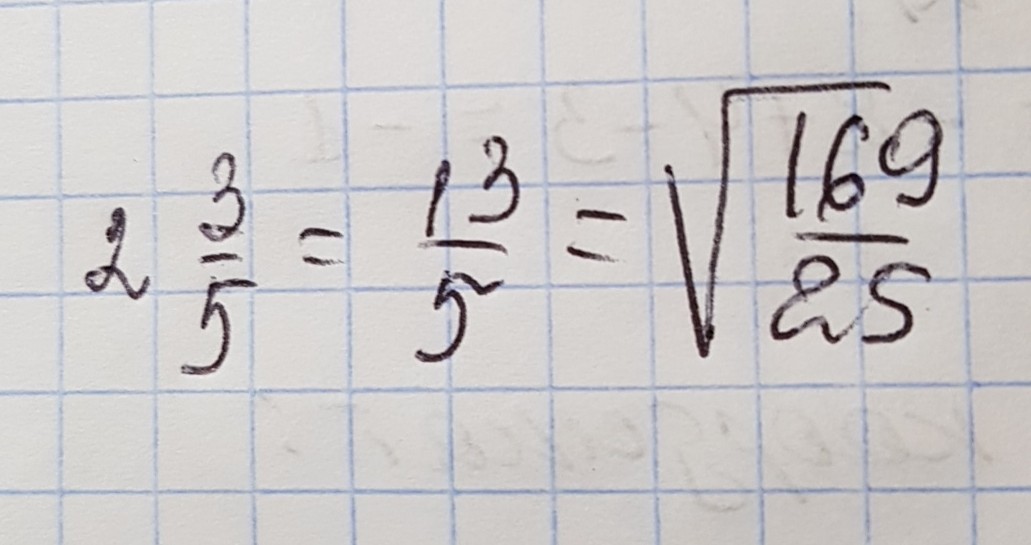 2 3/5 = 13/5 = √(169/25)